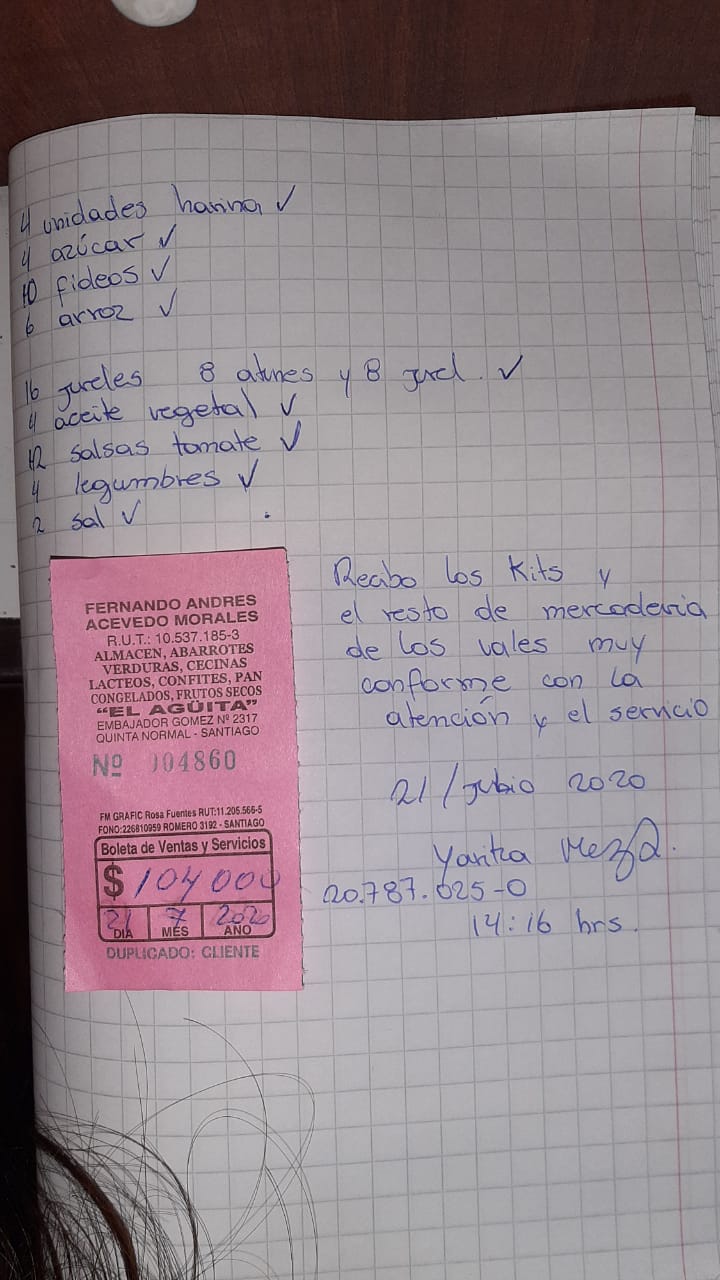 4 unidades harina ✓
4 azúcar ✓
10 fideos ✓
6 arroz ✓
16 jureles 8 atunes y 8 jurel. ✓
4 aceite vegetal ✓
12 salsas tomate ✓
4 legumbres ✓
2 sal ✓
FERNANDO ANDRES
ACEVEDO MORALES
R.U.T.: 10.537.185-3
ALMACEN, ABARROTES
VERDURAS, CECINAS
LACTEOS, CONFITES, PAN
CONGELADOS, FRUTOS SECOS
"EL AGÜITA"
EMBAJADOR GOMEZ Nº 2317
QUINTA NORMAL - SANTIAGO
Nº 004860
FM GRAFIC Rosa Fuentes RUT:11.205.566-5
FONO:226810959 ROMERO 3192 - SANTIAGO
Boleta de Ventas y Servicios
$ 104000
21 7 2020
DIA MES AÑO
DUPLICADO: CLIENTE
Recibo los Kits y
el resto de mercaderia
de los vales muy
conforme con la
atención y el servicio
21/Julio 2020
Yaritza Meza.
20.787.625-0
14:16 hrs.